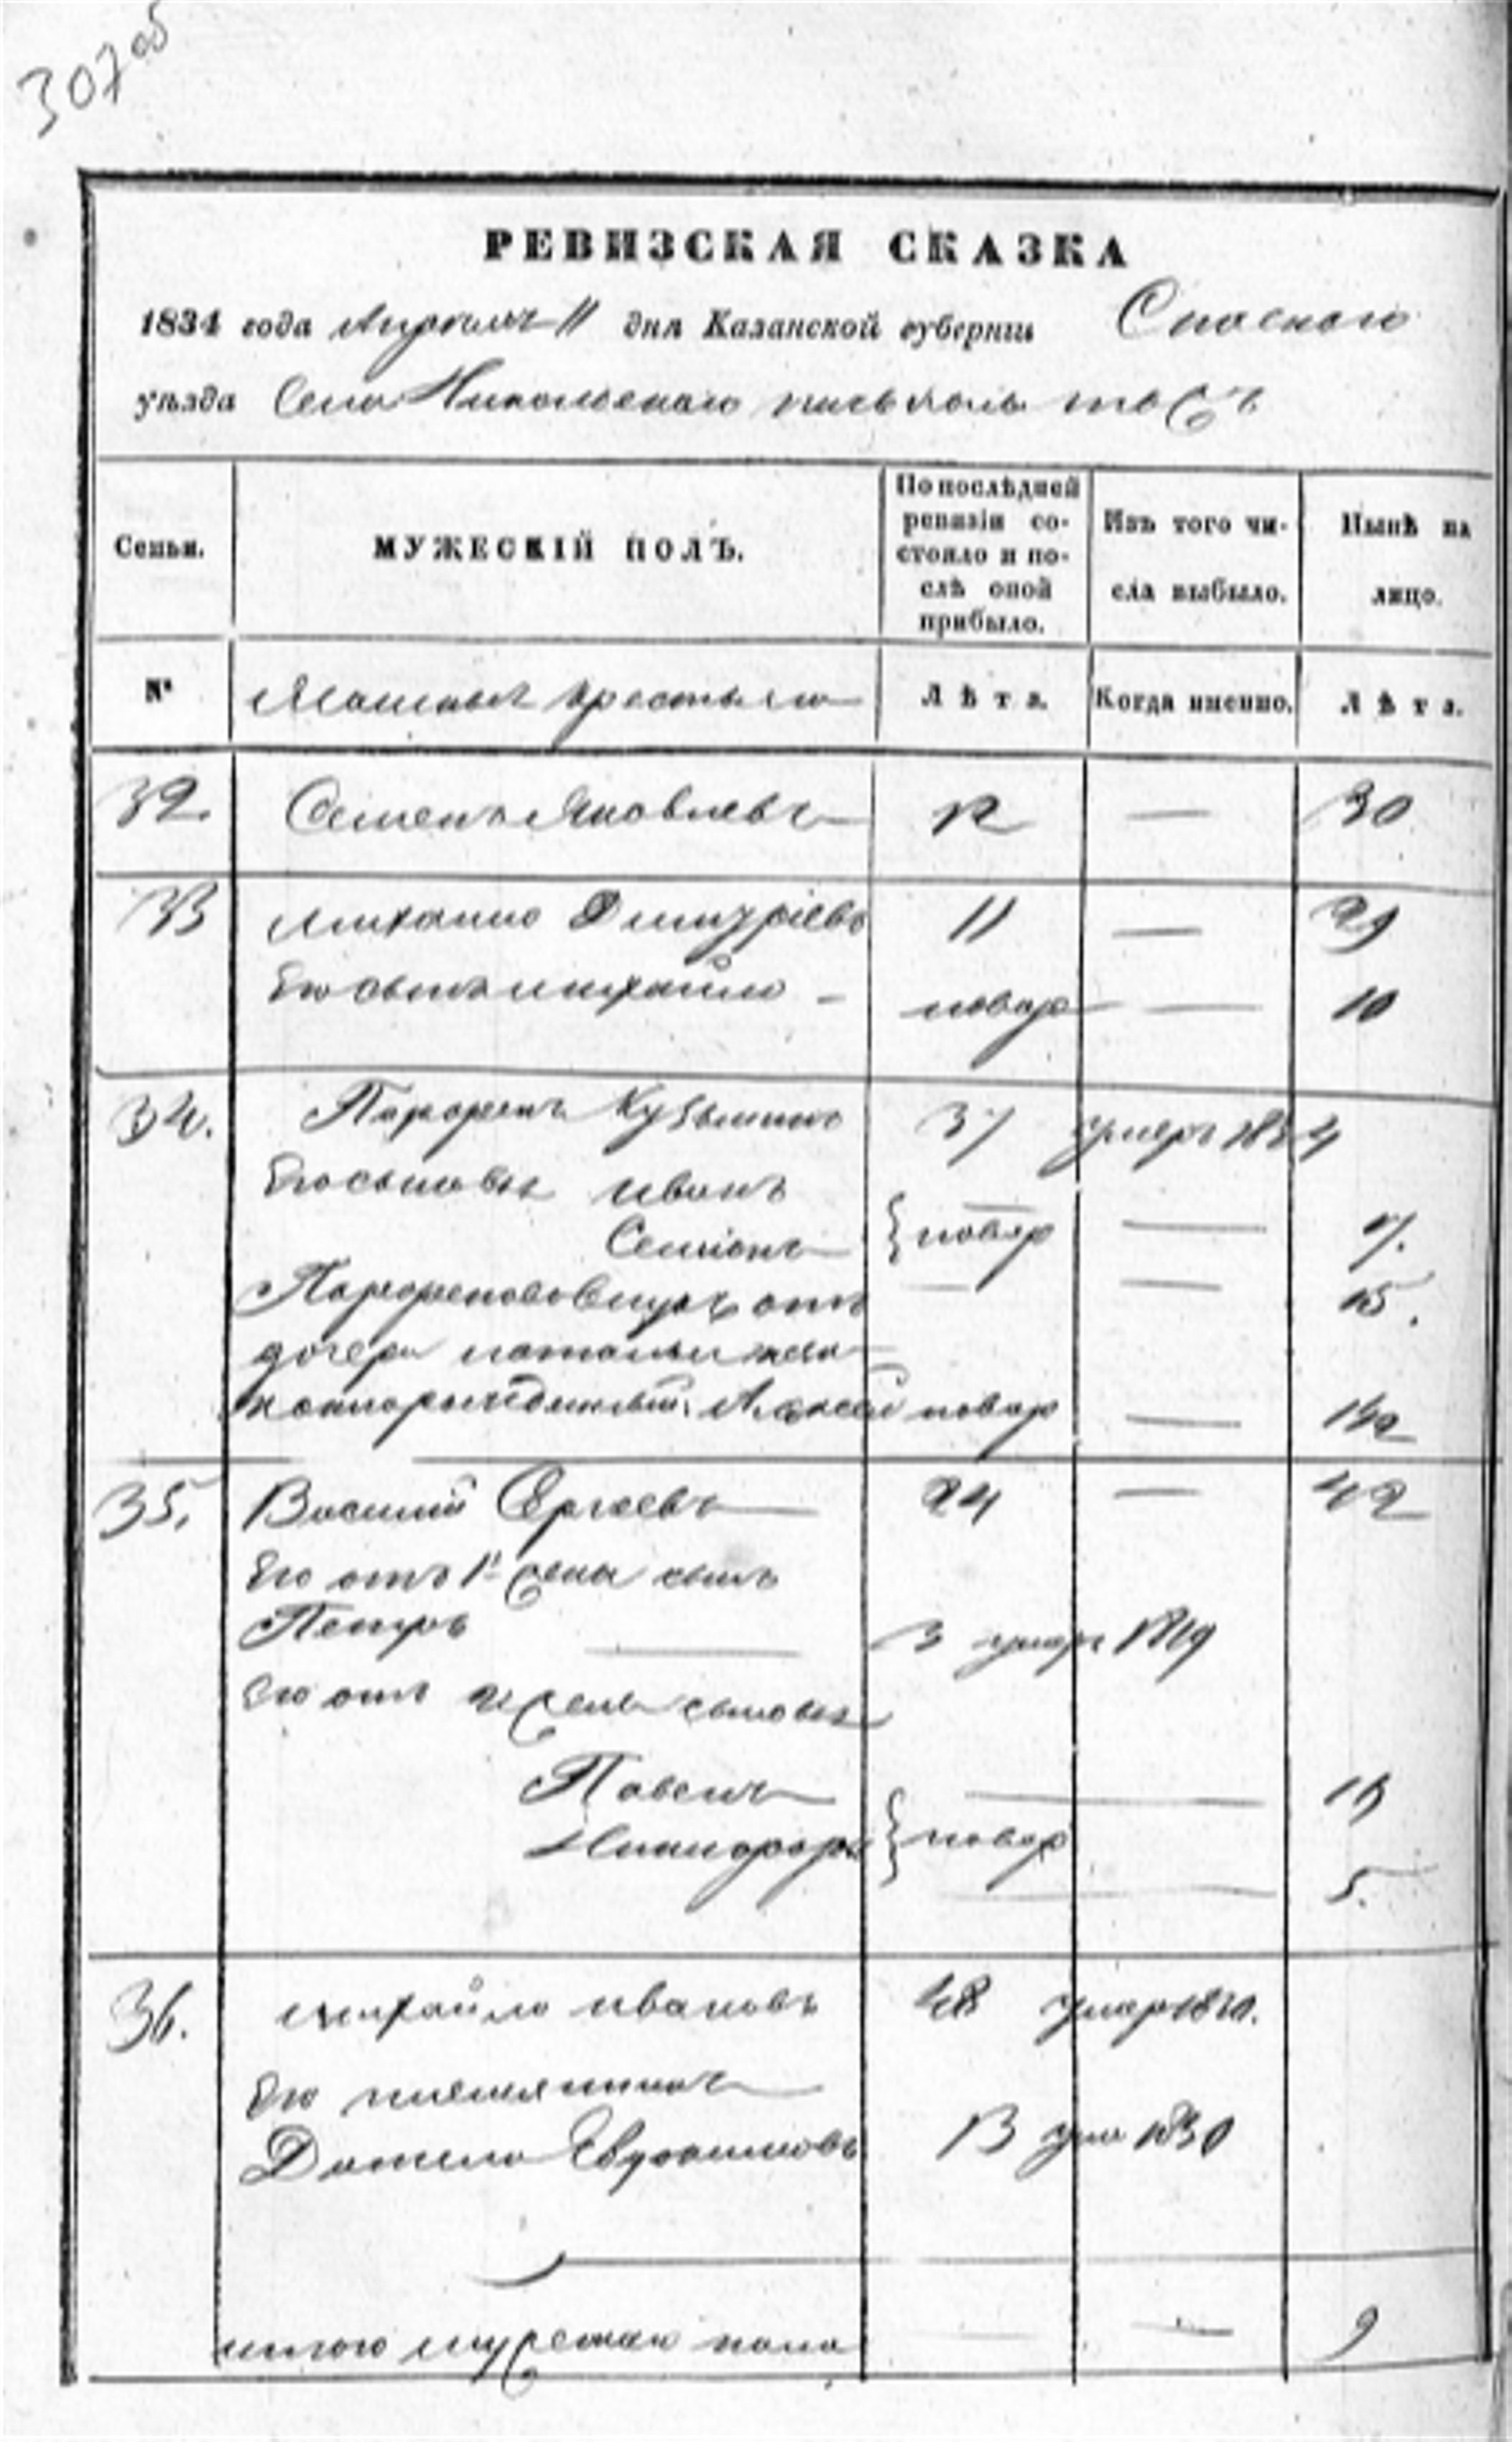 307 об
РЕВИЗСКАЯ СКАЗКА
1834 года Апреля 11 дня Казанской губернiи Спаскаго
уѣзда Села Никольскаго
Семьи.
МУЖЕСКIЙ ПОЛЪ.
По послѣдней ревизiи состояло и послѣ оной прибыло.
Изъ того числа выбыло.
Нынѣ на лицо.
№ крестьяне Лѣта. Когда именно. Лѣта.
32. Семенъ Яковлевъ 12 — 30
33 Михаило Димитрiевъ 11 — 29
Его сынъ Михайло - новор — 10
34. Парфенъ Кузьминъ 37 умеръ 1824
Его сыновья Иванъ
Семiонъ новор — 17.
— — 15.
дочери Натальи
Алексей новор —
35. Василий Сергеевъ 24 — 42
Его отъ 1й жены сынъ
Петръ 3 умеръ 1819
Его отъ 2й жены сыновья
Павелъ —
Никифоръ новор
5.
36. Михайло Ивановъ 48 умер 1830.
Его племянникъ
Данило Евдокимовъ 13 уме 1830
итого мужеска пола — — 9